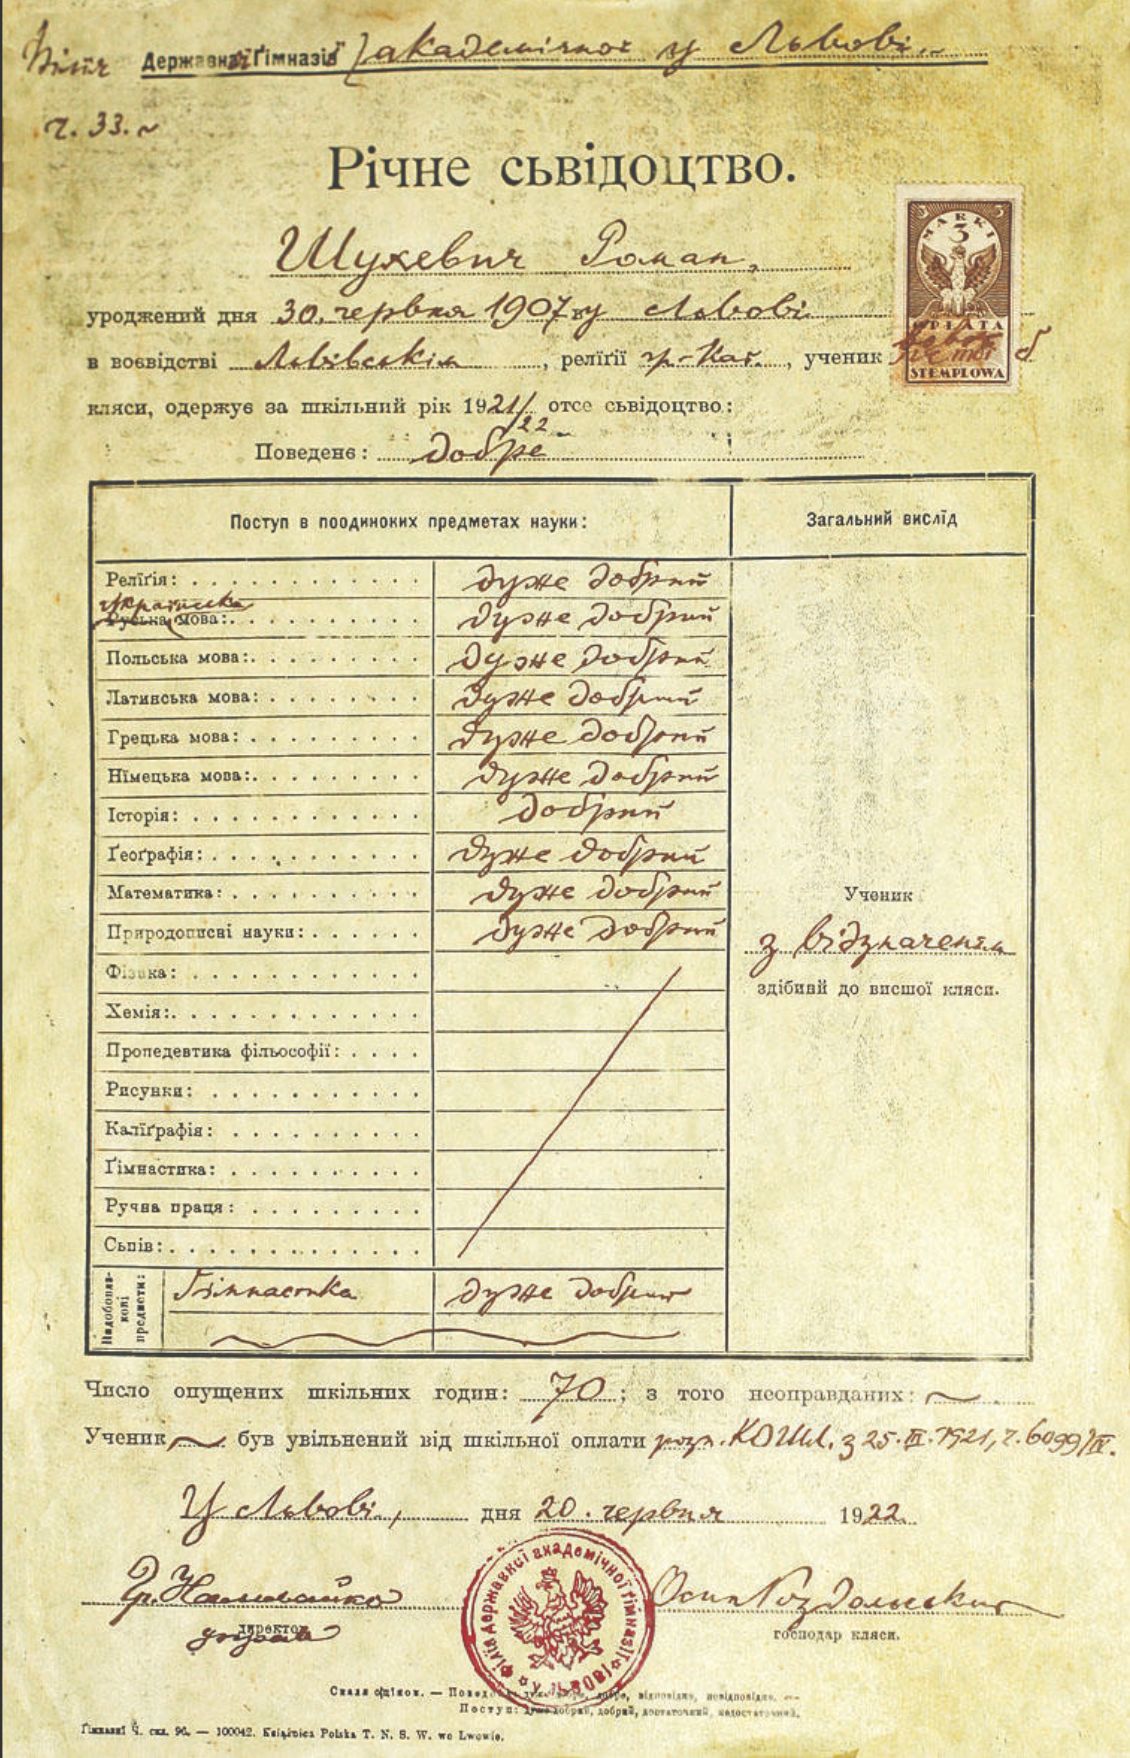 Філія Державної Ґімназії академічної у Львові.
ч. 33.
Річне сьвідоцтво.
Шухевич Роман,
уроджений дня 30. червня 1907 у Львові
в воєвідстві Львівскім, релїґії гр-кат., ученик
кляси, одержує за шкільний рік 1921/22 отсе сьвідоцтво:
Поведенє: добре
MARKI 3 3 3
OPŁATA
STEMPLOWA
Поступ в поодиноких предметах науки: Загальний вислїд
Релїґія: дуже добрий
українська
Руська мова: дуже добрий
Польська мова: дуже добрий
Латинська мова: дуже добрий
Грецька мова: дуже добрий
Нїмецька мова: дуже добрий
Історія: добрий
Ґеоґрафія: дуже добрий
Математика: дуже добрий
Природописні науки: дуже добрий
Фізика:
Хемія:
Пропедевтика фільософії:
Рисунки:
Калїґрафія:
Ґімнастика:
Ручна праця:
Сьпів:
Ученик
з відзначенєм
здібний до висшої кляси.
Надобовязкові предмети: Гімнастика дуже добрий
Число опущених шкільних годин: 70; з того неоправданих: ~
Ученик ~ був увільнений від шкільної оплати розп. КОШЛ. з 25. III. 1921, ч. 6099/IV.
У Львові, дня 20. червня 1922
Осип Роздольский
директор господар кляси.
Філія державної академічної ґімназії у Львові
Скаля оцїнок. — Поведенє: дуже добре, добре, відповідне, невідповідне. —
Поступ: дуже добрий, добрий, достаточний, недостаточний.
Ґімназ. Ч. скл. 96. — 100042. Książnica Polska T. N. S. W. we Lwowie.